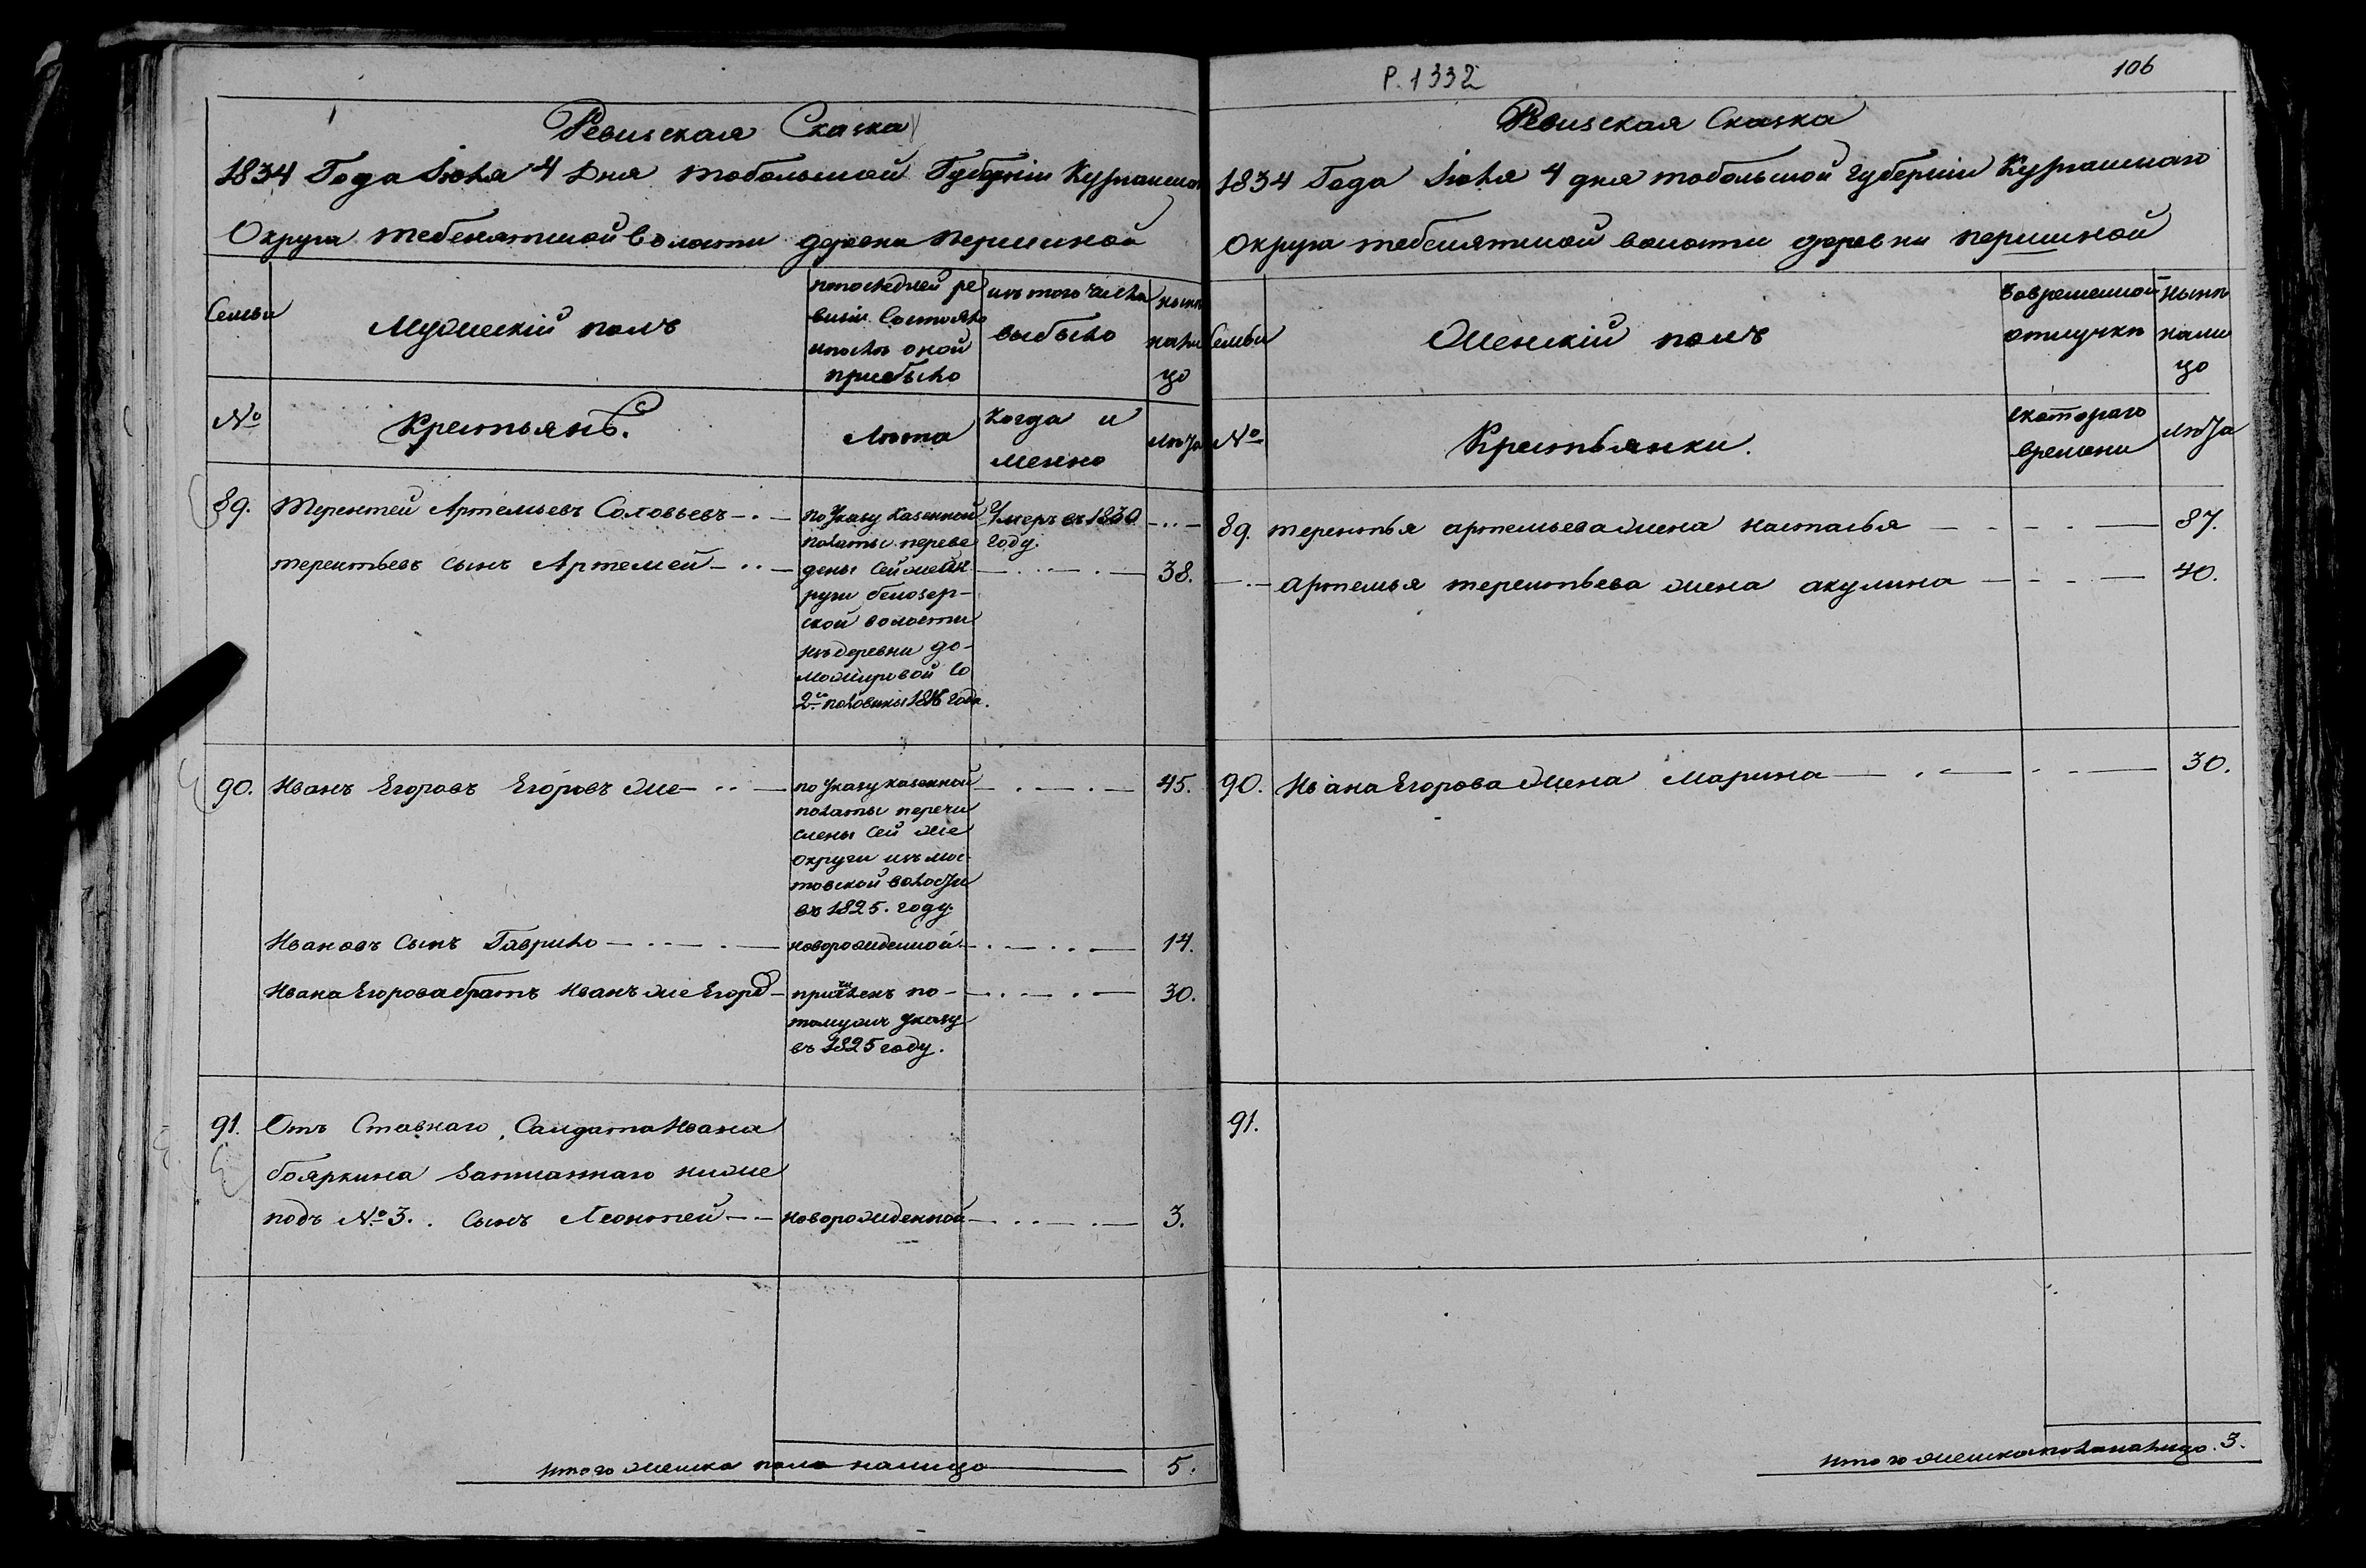 Ревизская Сказка
1834 Года Іюля 4 Дня тобольской Губерніи Курганской
Округи тебенятской Волости деревни першиной
Семьи
Мужескій полъ
попоследней ре
визіи Состояло
ипослѣ оной
прибыло
изъ того числа
выбыло
нынѣ
нали
цо
№
Крестьянъ.
Лѣта
Когда и
менно
лѣта
89. Терентей Артемьевъ Соловьевъ
по Указу Казенной
палаты переве
дены Сей же ок
руги белозер-
ской волости
изъ деревни до-
можировой со
2й половины 1816 года.
Умеръ въ 1830
году.
терентьевъ сынъ Артемей
38.
90. Иванъ Егоровъ Егоровъ же
по Указу казенной
палаты перечи
слены Сей же
округи изъ мос-
товской волости
въ 1825. году.
45.
Ивановъ Сынъ Гаврило
новорожденной
14.
Ивана Егорова братъ Иванъ же Егоровъ
причисленъ по-
томужъ Указу
въ 1825 году.
30.
91. Отъ Ставнаго Салдата Ивана
бояркина Записаннаго ниже
подъ № 3. Сынъ Леонтей
новорожденной
3.
итого мужеска пола налицо
5.
Р. 1332
106
Ревизская Сказка
1834 Года Іюля 4 дня тобольской губерніи Курганскаго
Округа тебенятской волости деревни першиной
Семьи
Женскій полъ
Вовременной
отлучкѣ
нынѣ
нали
цо
№
Крестьянки.
скотораго
времени
лѣта
89. терентья артемьева жена настасья
87.
Артемья терентьева жена акулина
40.
90. Ивана Егорова жена Марина
30.
91.
итого женска пола налицо. 3.